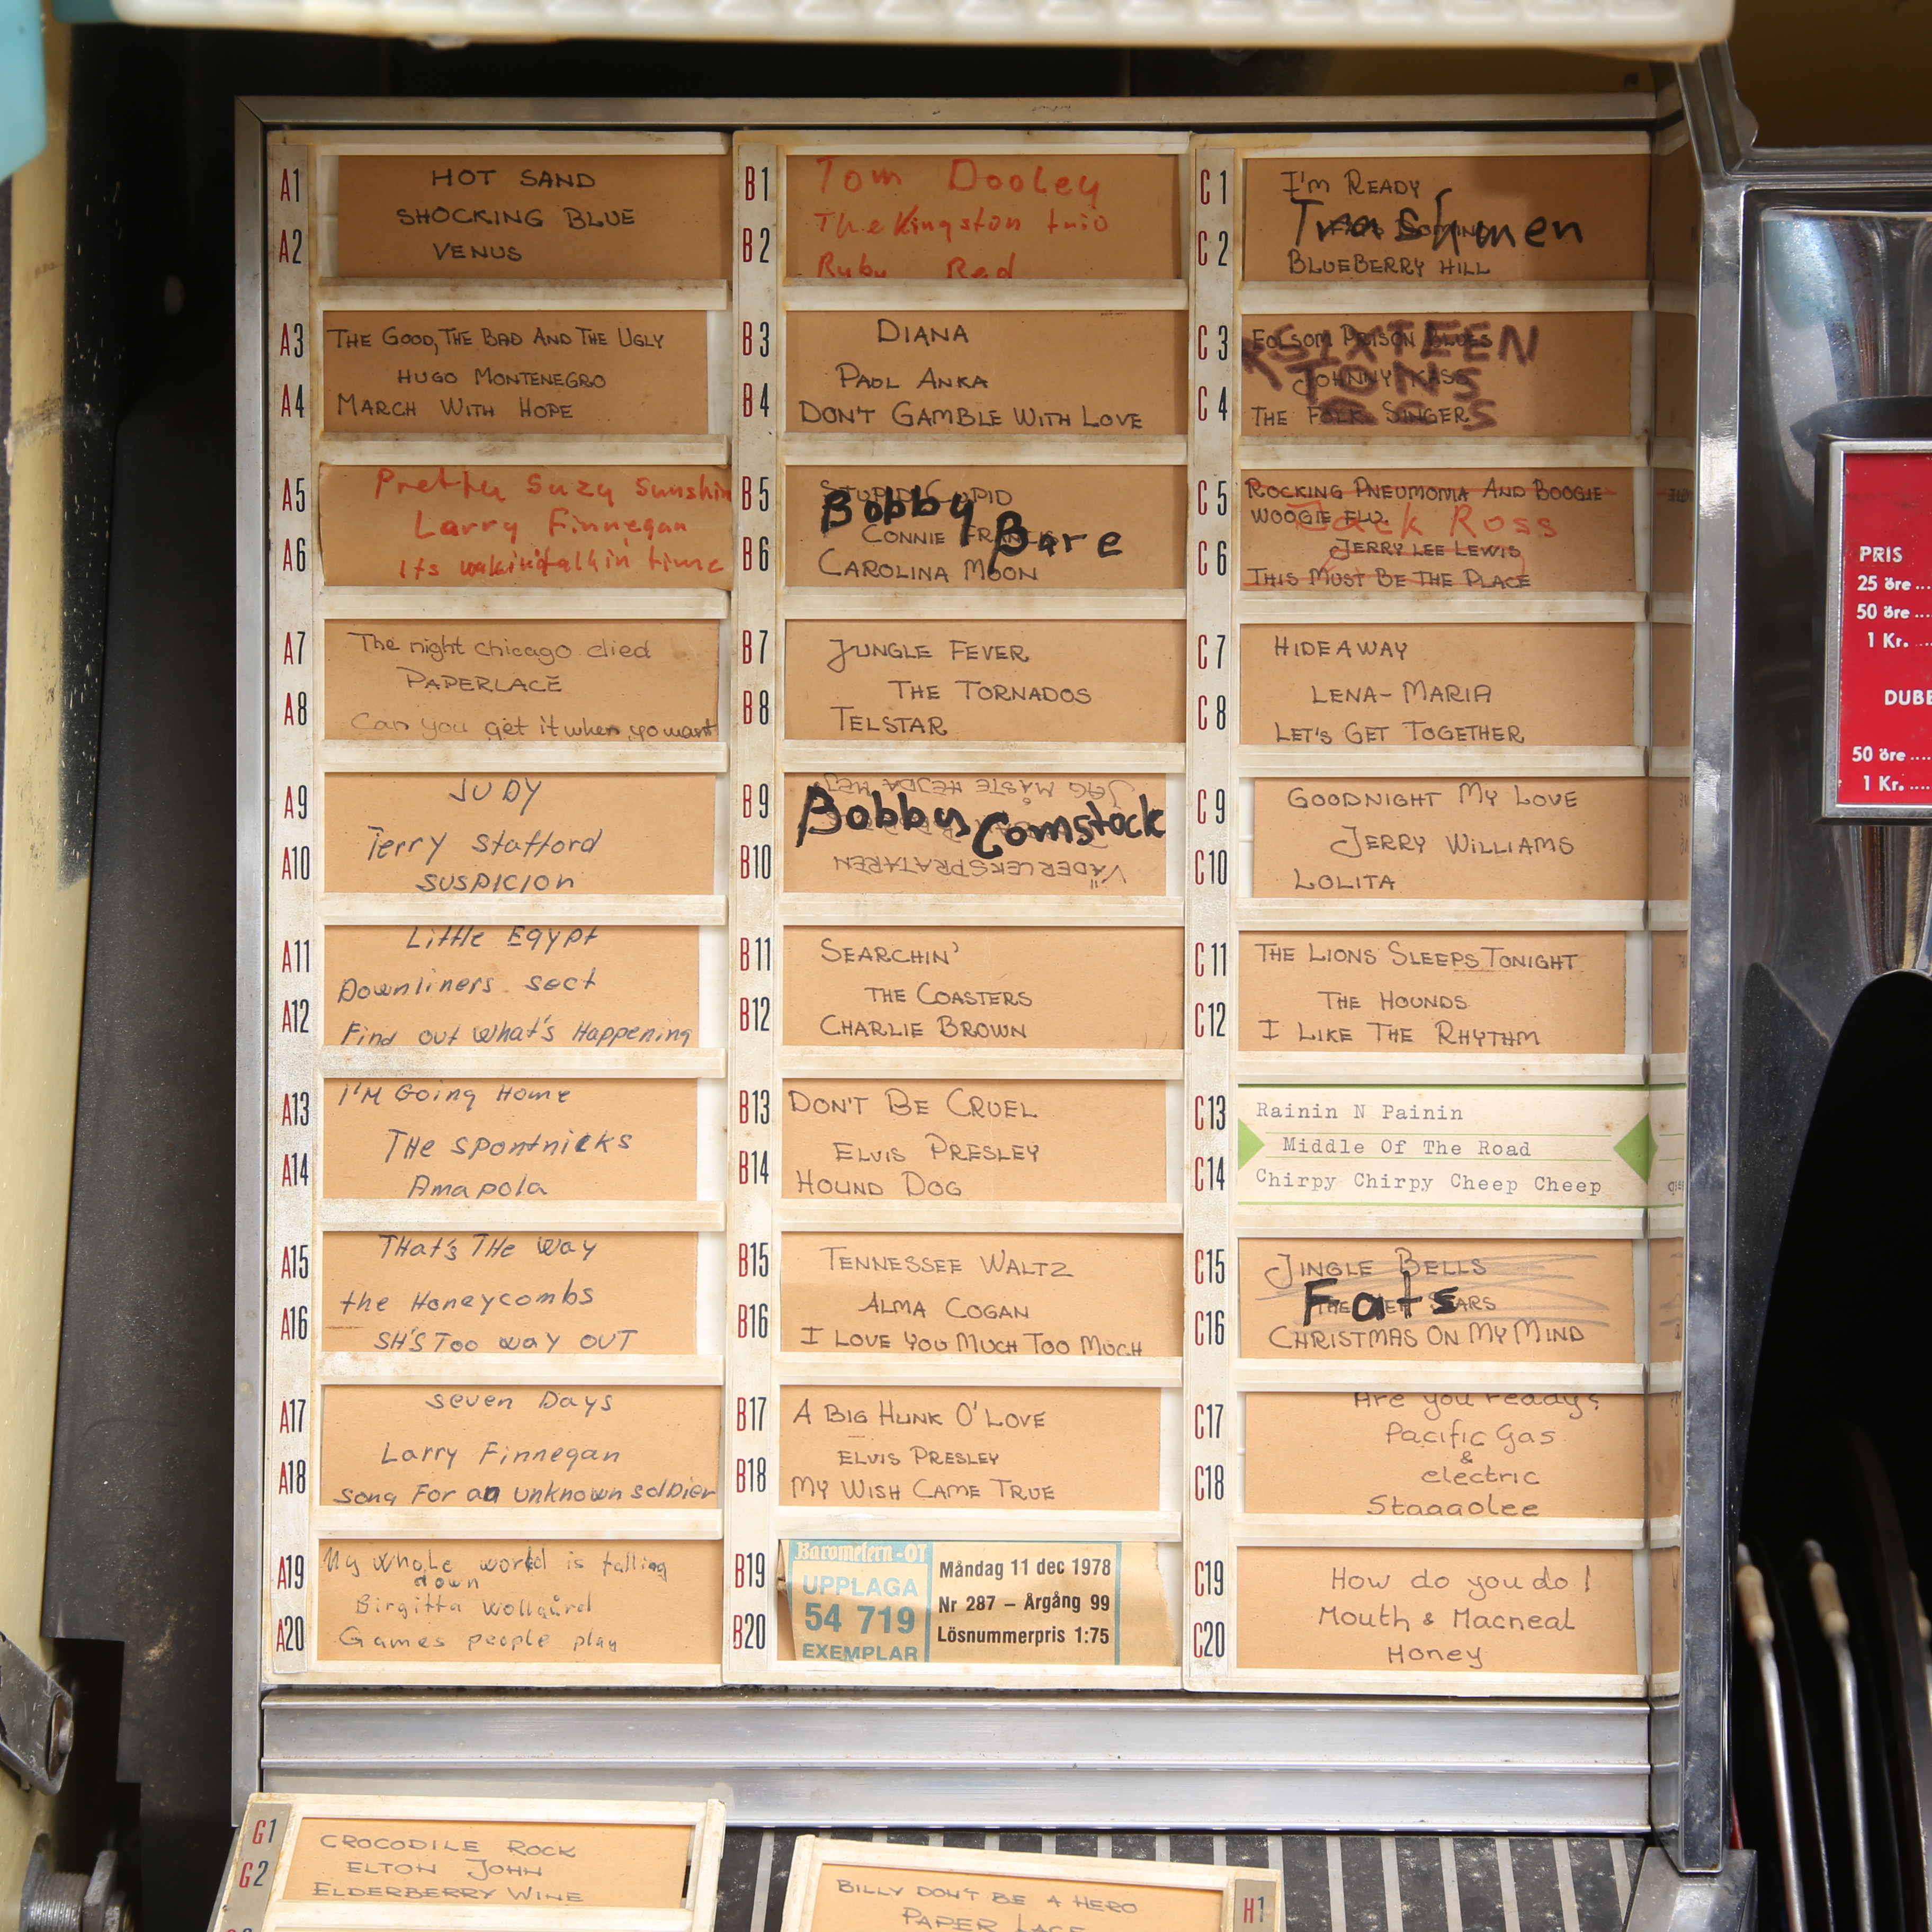 A1
HOT SAND
SHOCKING BLUE
A2
VENUS
A3
THE GOOD, THE BAD AND THE UGLY
HUGO MONTENEGRO
A4
MARCH WITH HOPE
A5
Pretty Suzy Sunshin
Larry Finnegan
A6
Its time
A7
The night chicago died
PAPERLACE
A8
Can you get it when yo want
A9
JUDY
Terry Stafford
A10
SUSPICION
A11
Little Egypt
Downliners sect
A12
Find out what's Happening
A13
I'M Going Home
THe spontnicks
A14
Amapola
A15
THat's THe way
the Honeycombs
A16
SH'S TOO WAY OUT
A17
seven Days
Larry Finnegan
A18
song For an unknown solDier
A19
My whole world is falling
down
Birgitta Wollgård
A20
Games people play
B1
Tom Dooley
The Kingston trio
B2
Ruby Red
B3
DIANA
PAUL ANKA
B4
DON'T GAMBLE WITH LOVE
B5
STUPID CUPID
Bobby Bare
CONNIE FRANCIS
B6
CAROLINA MOON
B7
JUNGLE FEVER
THE TORNADOS
B8
TELSTAR
B9
JAG MÅSTE HEJDA MEJ
Bobby Comstock
B10
VÄDERLEKSPRATAREN
B11
SEARCHIN'
THE COASTERS
B12
CHARLIE BROWN
B13
DON'T BE CRUEL
ELVIS PRESLEY
B14
HOUND DOG
B15
TENNESSEE WALTZ
ALMA COGAN
B16
I LOVE YOU MUCH TOO MUCH
B17
A BIG HUNK O' LOVE
ELVIS PRESLEY
B18
MY WISH CAME TRUE
B19
Barometern-OT
UPPLAGA
54 719
EXEMPLAR
Måndag 11 dec 1978
Nr 287 – Årgång 99
Lösnummerpris 1:75
B20
C1
I'M READY
Trashmen
C2
BLUEBERRY HILL
C3
FOLSOM PRISON BLUES
SIXTEEN
JOHNNY KASS
TONS
C4
THE FOLK SINGER
C5
ROCKING PNEUMONIA AND BOOGIE
WOOGIE FLU
Jack Ross
C6
JERRY LEE LEWIS
THIS MUST BE THE PLACE
C7
HIDEAWAY
LENA-MARIA
C8
LET'S GET TOGETHER
C9
GOODNIGHT MY LOVE
JERRY WILLIAMS
C10
LOLITA
C11
THE LIONS SLEEPS TONIGHT
THE HOUNDS
C12
I LIKE THE RHYTHM
C13
Rainin N Painin
Middle Of The Road
C14
Chirpy Chirpy Cheep Cheep
C15
JINGLE BELLS
Fats
C16
CHRISTMAS ON MY MIND
C17
Are you ready?
Pacific Gas
&
C18
electric
Staggolee
C19
How do you do!
Mouth & Macneal
C20
Honey
G1
CROCODILE ROCK
G2
ELTON JOHN
ELDERBERRY WINE
BILLY DON'T BE A HERO
PAPER LACE
H1
PRIS
25 öre ...
50 öre ...
1 Kr. ...
DUBB
50 öre ...
1 Kr. ...